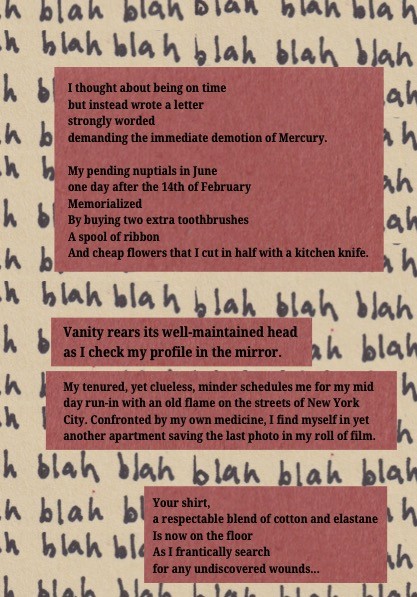 blah blah blah blah blah
h blah blah blah blah blah
I thought about being on time
but instead wrote a letter
strongly worded
demanding the immediate demotion of Mercury.
My pending nuptials in June
one day after the 14th of February
Memorialized
By buying two extra toothbrushes
A spool of ribbon
And cheap flowers that I cut in half with a kitchen knife.
blah blah blah blah blah
Vanity rears its well-maintained head
as I check my profile in the mirror.
My tenured, yet clueless, minder schedules me for my mid
day run-in with an old flame on the streets of New York
City. Confronted by my own medicine, I find myself in yet
another apartment saving the last photo in my roll of film.
h blah blah blah blah blah
Your shirt,
a respectable blend of cotton and elastane
Is now on the floor
As I frantically search
for any undiscovered wounds...